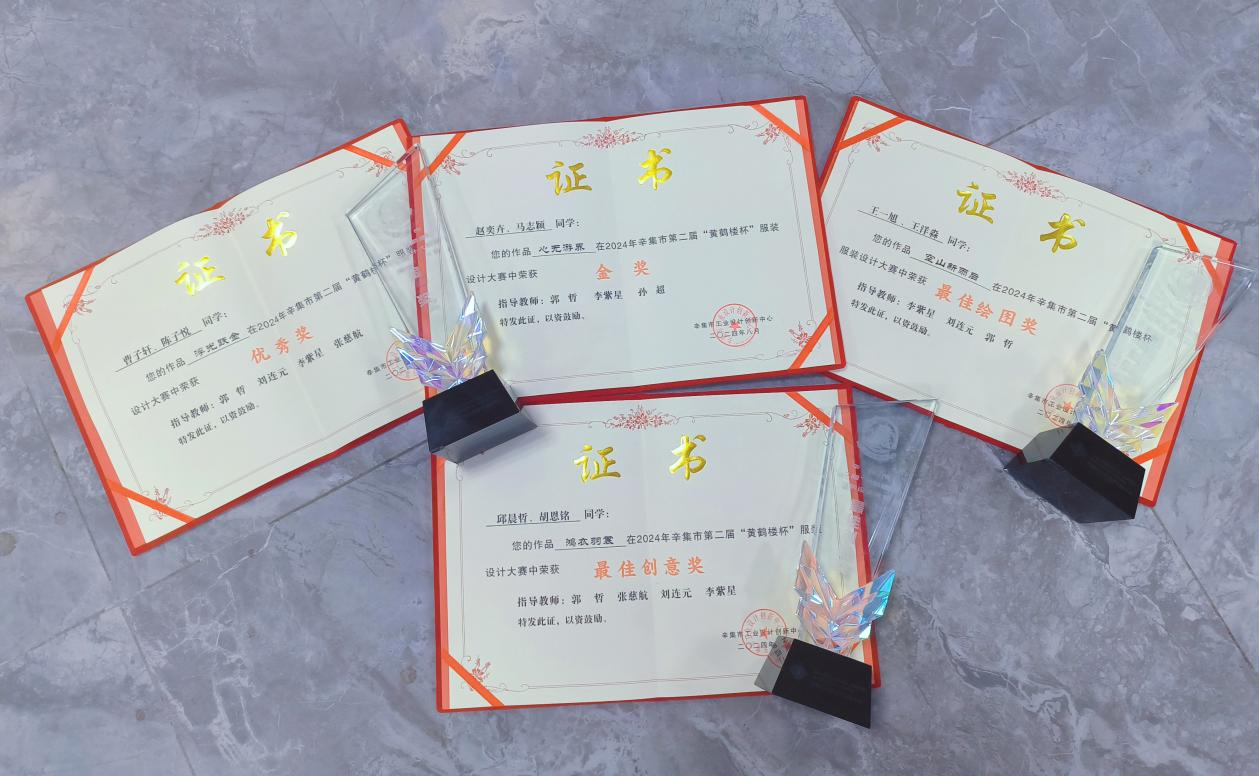 证书
曹子轩、陈子悦 同学:
您的作品 浮光跃金 在2024年辛集市第二届“黄鹤楼杯”服装
设计大赛中荣获 优秀奖
指导教师:郭 哲 刘连元 李紫星 张慈航
特发此证,以资鼓励。
证书
赵奕卉、马志颖 同学:
您的作品 心无游泉 在2024年辛集市第二届“黄鹤楼杯”服装
设计大赛中荣获 金奖
指导教师:郭 哲 李紫星 孙 超
特发此证,以资鼓励。
辛集市工业设计创新中心
二〇二四年八月
证书
王一旭、王洋淼 同学:
您的作品 空山新雨后 在2024年辛集市第二届“黄鹤楼杯”
服装设计大赛中荣获 最佳绘图奖
指导教师:李紫星 刘连元 郭 哲
特发此证,以资鼓励。
辛集市工业设计
二〇二四
证书
邱晨哲、胡恩铭 同学:
您的作品 鸿衣羽裳 在2024年辛集市第二届“黄鹤楼杯”服装
设计大赛中荣获 最佳创意奖
指导教师:郭 哲 张慈航 刘连元 李紫星
特发此证,以资鼓励。
辛集市工业设计创新中
二〇二四年